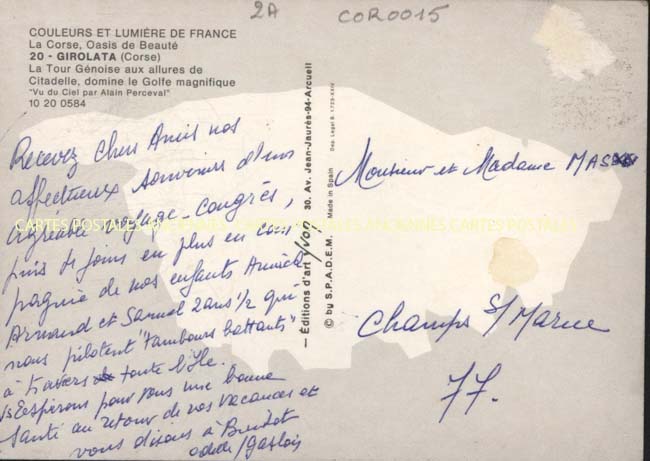 2A COR0015
COULEURS ET LUMIÈRE DE FRANCE
La Corse, Oasis de Beauté
20 - GIROLATA (Corse)
La Tour Génoise aux allures de
Citadelle, domine le Golfe magnifique
"Vu du Ciel par Alain Perceval"
10 20 0584
Recevez Chers Amis nos
affectueux souvenirs d'un
agréable voyage-congrès,
puis de joies en plus en com
pagnie de nos enfants
Arnaud et Samuel 2ans 1/2 qui
nous pilotent "tambours battants"
à travers toute l'Île.
Espérons pour vous une bonne
santé au retour de vos vacances et
vous disons à Bientôt
CARTES POSTALES ANCIENNES CARTES POSTALES ANCIENNES CARTES POSTALES
— Éditions d'art Yvon, 30. Av. Jean-Jaurès-94-Arcueil
© by S.P.A.D.E.M. Made in Spain
Monsieur et Madame
Champs s/ Marne
77.